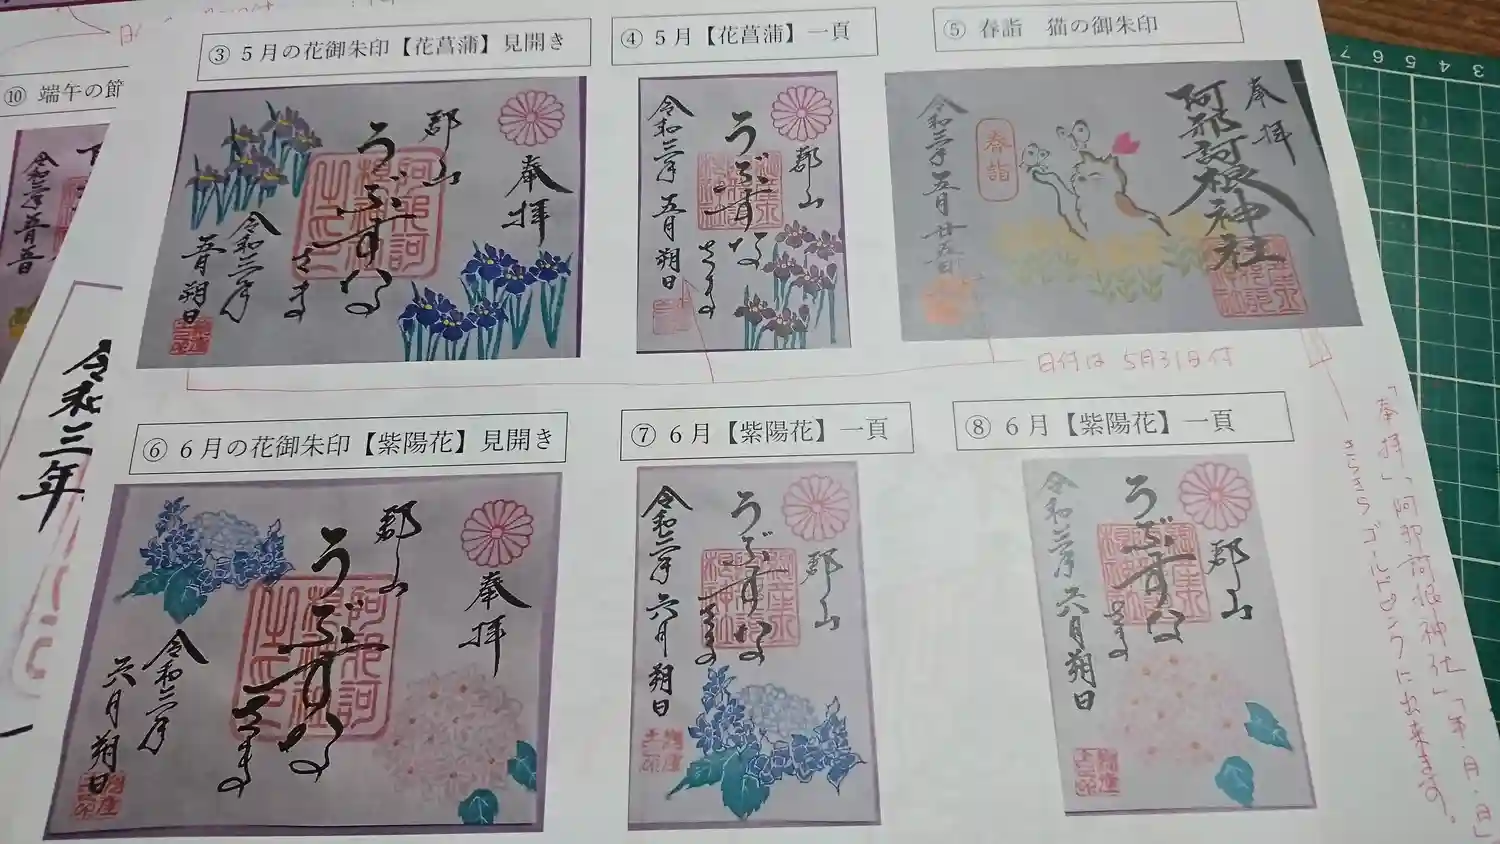 ⑩ 端午の節
令和三年
③ ５月の花御朱印【花菖蒲】見開き
奉拝
郡山
うぶすな
さま
令和三年
五月朔日
④ ５月【花菖蒲】一頁
郡山
うぶすな
さま
令和三年 五月朔日
⑤ 春詣　猫の御朱印
奉拝
阿邪訶根神社
春詣
令和三年五月廿五日
日付は 5月31日付
⑥ ６月の花御朱印【紫陽花】見開き
奉拝
郡山
うぶすな
さま
令和三年
六月朔日
⑦ ６月【紫陽花】一頁
郡山
うぶすな
さま
令和三年 六月朔日
⑧ ６月【紫陽花】一頁
郡山
うぶすな
さま
令和三年 六月朔日
「奉拝」、「阿邪訶根神社」「年・月・日」
きらきら ゴールドピンクに出来ます。